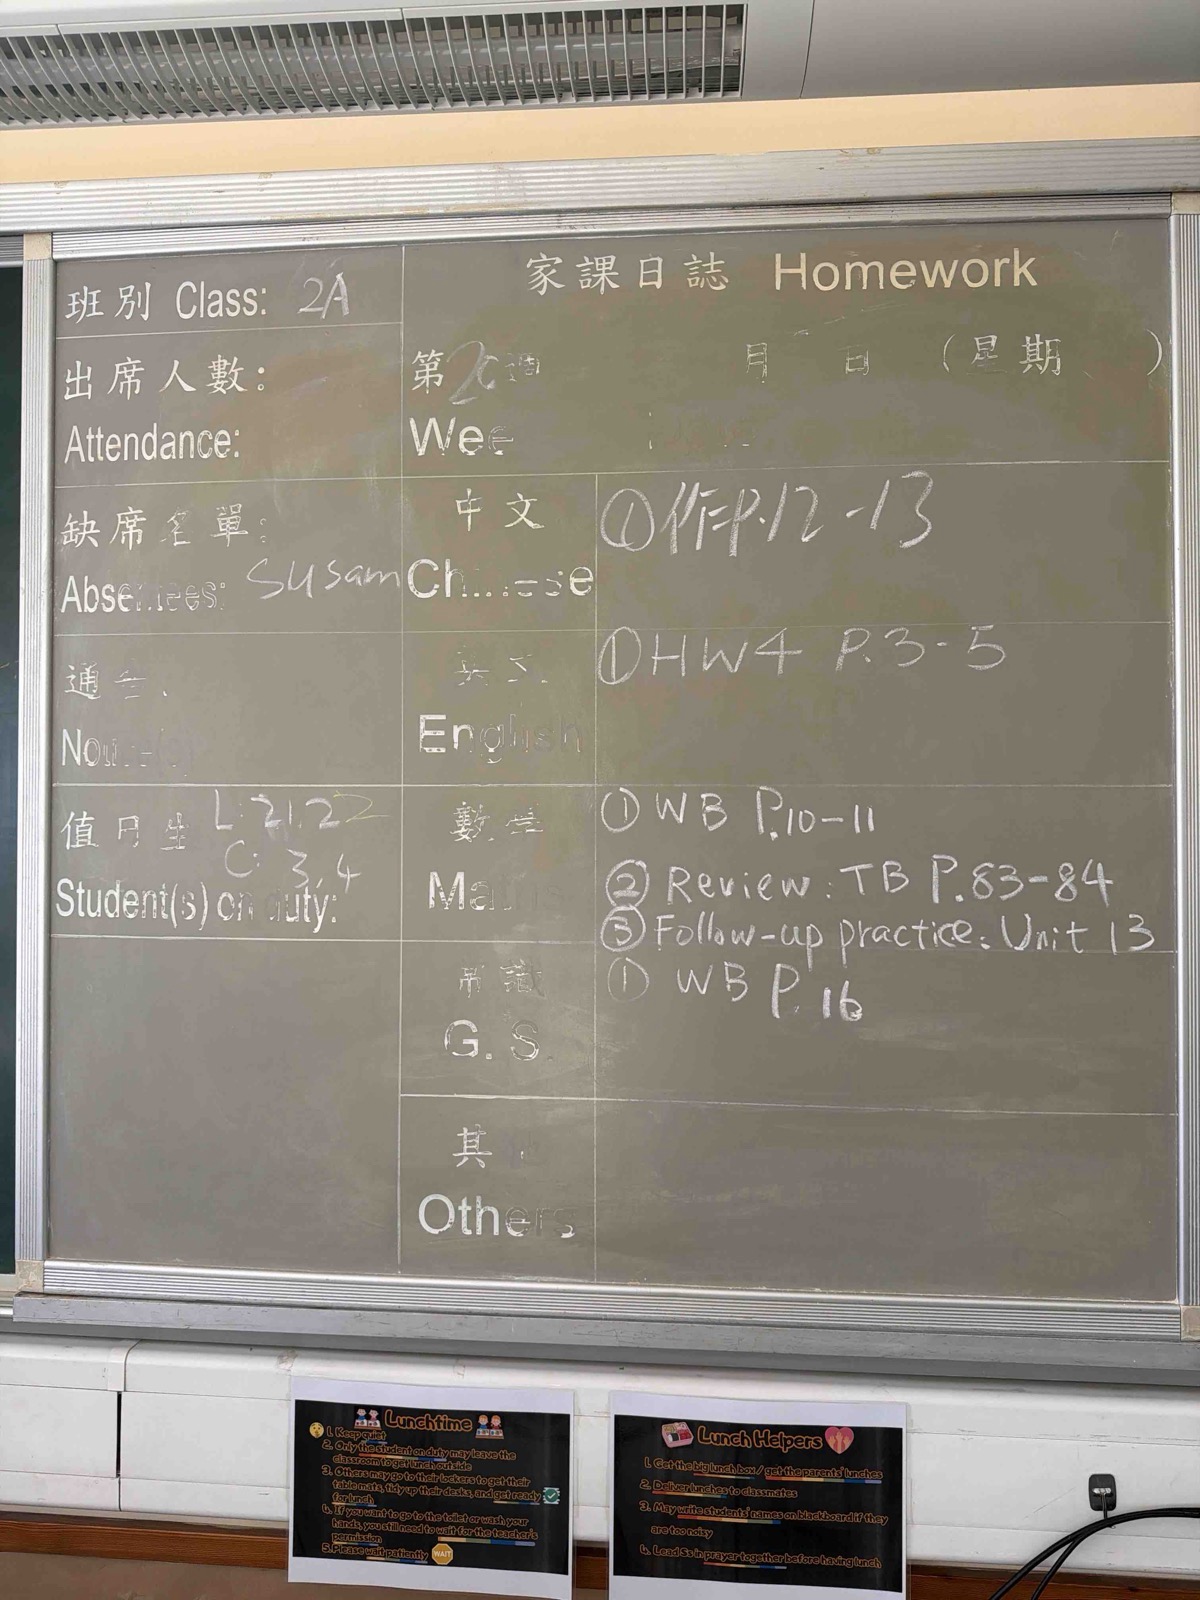 班別 Class: 2A
出席人數:
Attendance:
缺席名單:
Absentees: Susam
通告
值日生 L: 21.22
C: 3.4
Student(s) on duty:
家課日誌 Homework
第 週 月 日 (星期 )
中文
Chinese
①作P.12-13
英文
English
①HW4 P.3-5
數學
Maths
① WB P.10-11
② Review: TB P.83-84
③ Follow-up practice: Unit 13
常識
G. S.
① WB P.16
其他
Others
Lunchtime
1. Keep quiet
2. Only the student on duty may leave the
classroom to get lunch outside
3. Others may go to their lockers to get their
table mats, tidy up their desks, and get ready
for lunch
4. If you want to go to the toilet or wash your
hands, you still need to wait for the teacher's
permission
5. Please wait patiently WAIT
Lunch Helpers
1. Get the big lunch box / get the parents' lunches
2. Deliver lunches to classmates
3. May write students' names on blackboard if they
are too noisy
4. Lead Ss in prayer together before having lunch